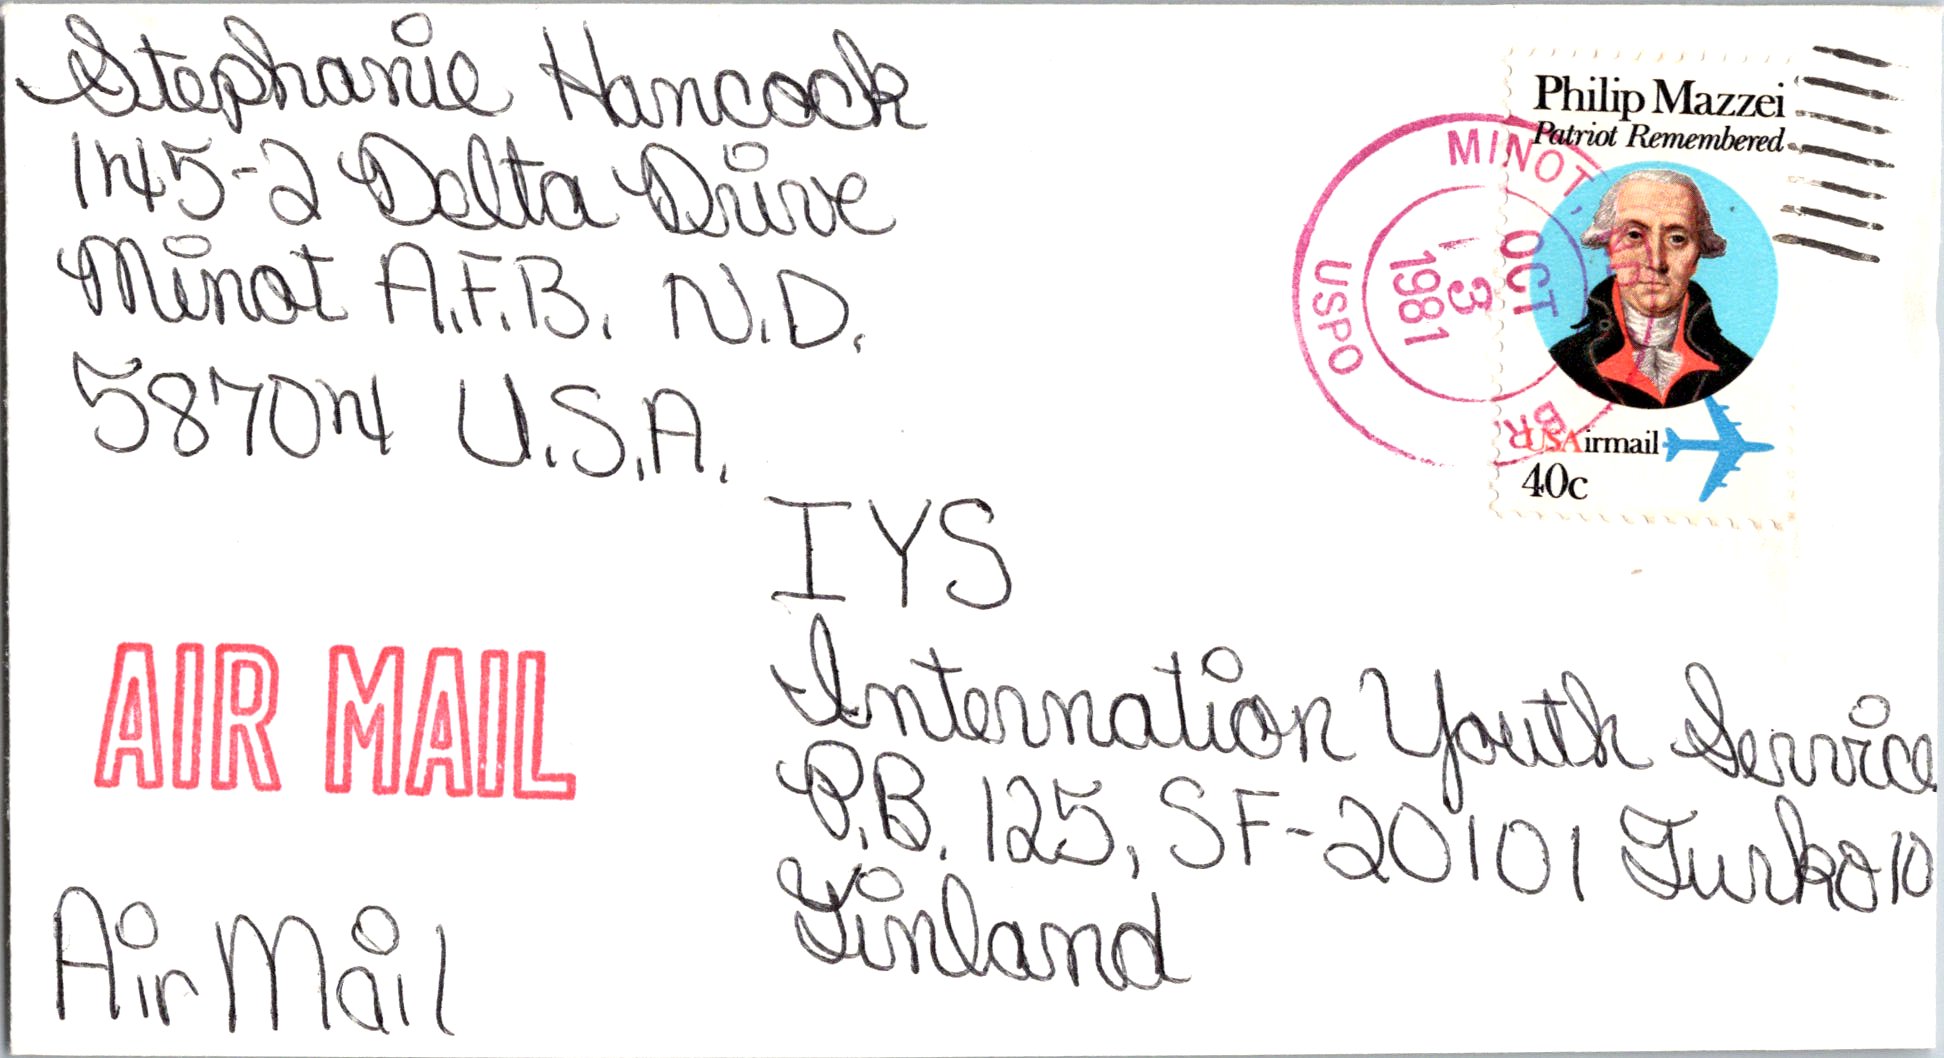 Stephanie Hancock
145-2 Delta Drive
Minot A.F.B. N.D.
58704 U.S.A.
Philip Mazzei
Patriot Remembered
USAirmail
40c
MINOT,
OCT
13
1981
USPO
BR.
IYS
Internation Youth Service
P.B. 125, SF-20101 Turko 10
Finland
AIR MAIL
Air Mail